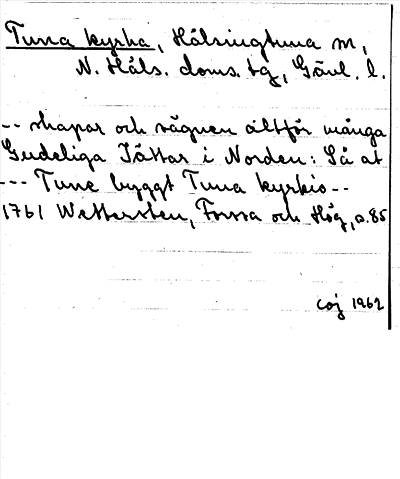 Tuna kyrka, Hälsingtuna sn,
N. Häls. doms. tg, Gävl. l.
-- skapar och sägnen altför många
Gudeliga Jättar i Norden: Så at
--- Tune byggt Tuna kyrkio--
1761 Wettersten, Forssa och Hög, s. 85
coj 1962